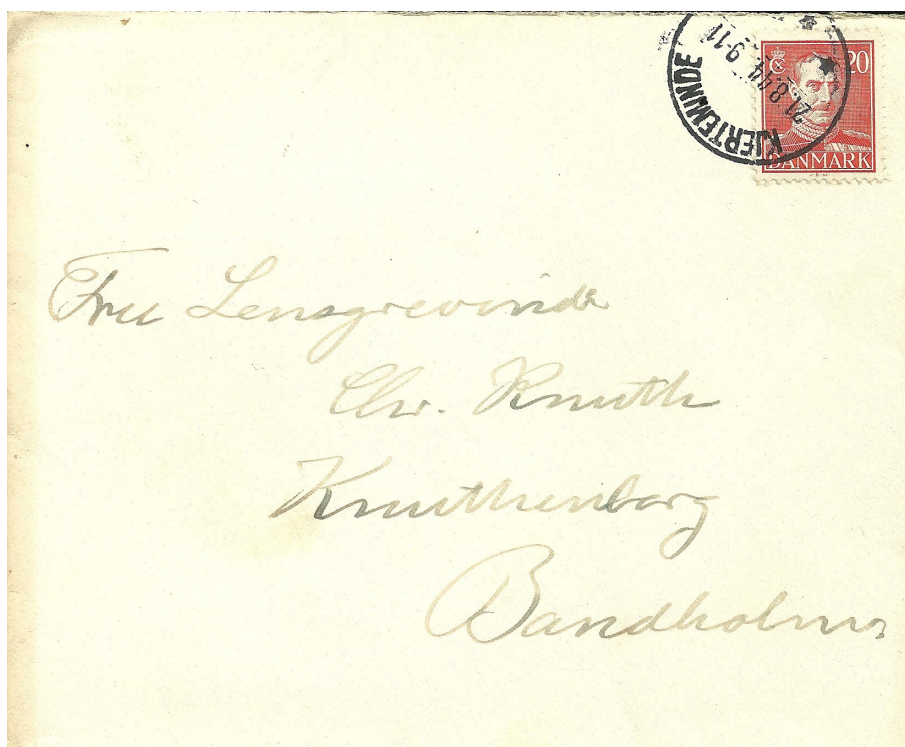 KJERTEMINDE
21.8.44. 9-11
20
DANMARK
Fru Lensgrevinde
Chr. Knuth
Knuthenborg
Bandholm.